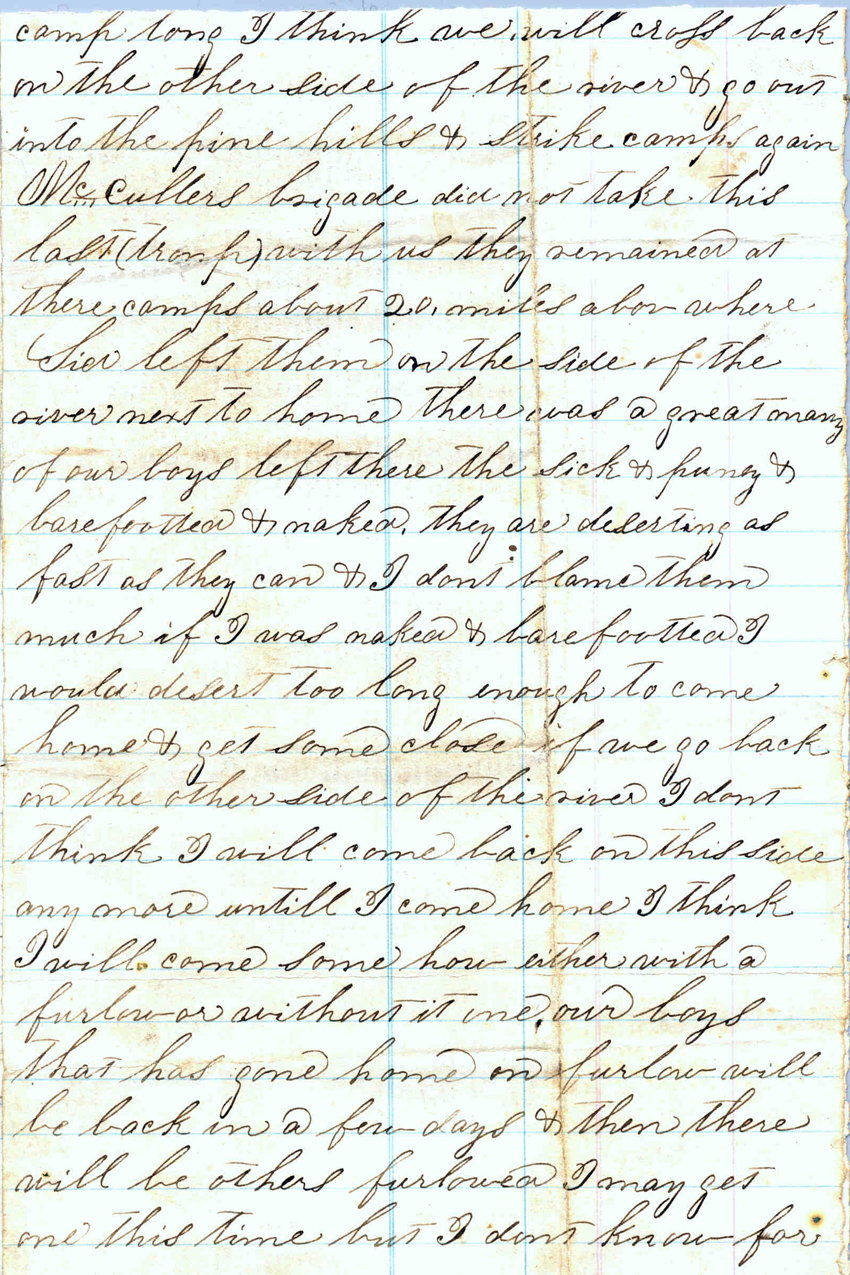 camp long I think we will cross back
on the other side of the river & go out
into the pine hills & strike camps again
McCullers brigade did not take this
last (tromp) with us they remained at
there camps about 20, miles abov where
Sid left them on the side of the
river next to home there was a great many
of our boys left there the sick & puney &
barefootted & naked. they are deserting as
fast as they can & I dont blame them
much if I was naked & barefootted I
would desert too long enough to come
home & get some close if we go back
on the other side of the river I dont
think I will come back on this side
any more untill I come home I think
I will come some how either with a
furlow or without it one, our boys
that has gone home on furlow will
be back in a few days & then there
will be others furlowed I may get
one this time but I dont know for